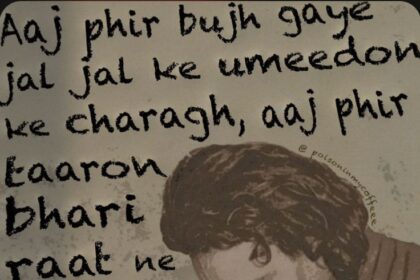 Aaj phir bujh gaye
jal jal ke umeedon
ke charagh, aaj phir
taaron
@poisoninmycoffeee
bhari
raat ne